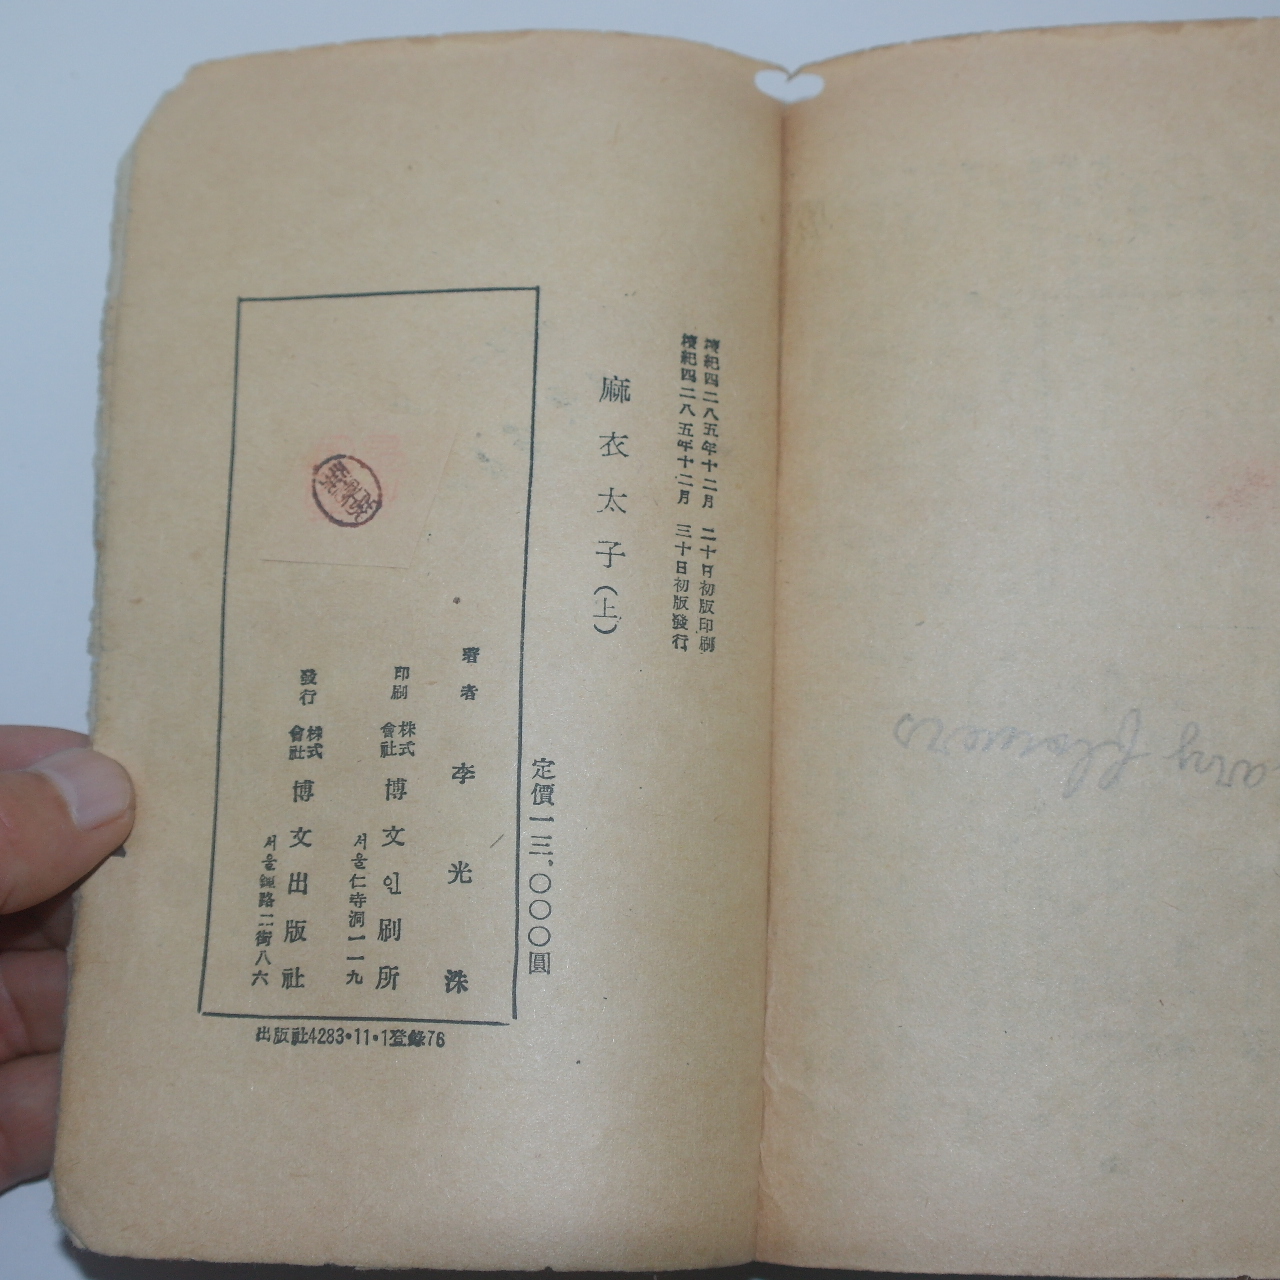 檀紀四二八五年十二月 二十日初版印刷
檀紀四二八五年十二月 三十日初版發行
麻衣太子(上)
定價一三,〇〇〇圓
著者 李光洙
印刷 株式會社 博文인刷所
서울仁寺洞一一九
發行 株式會社 博文出版社
서울鍾路二街八六
出版社4283·11·1登錄76
flowers